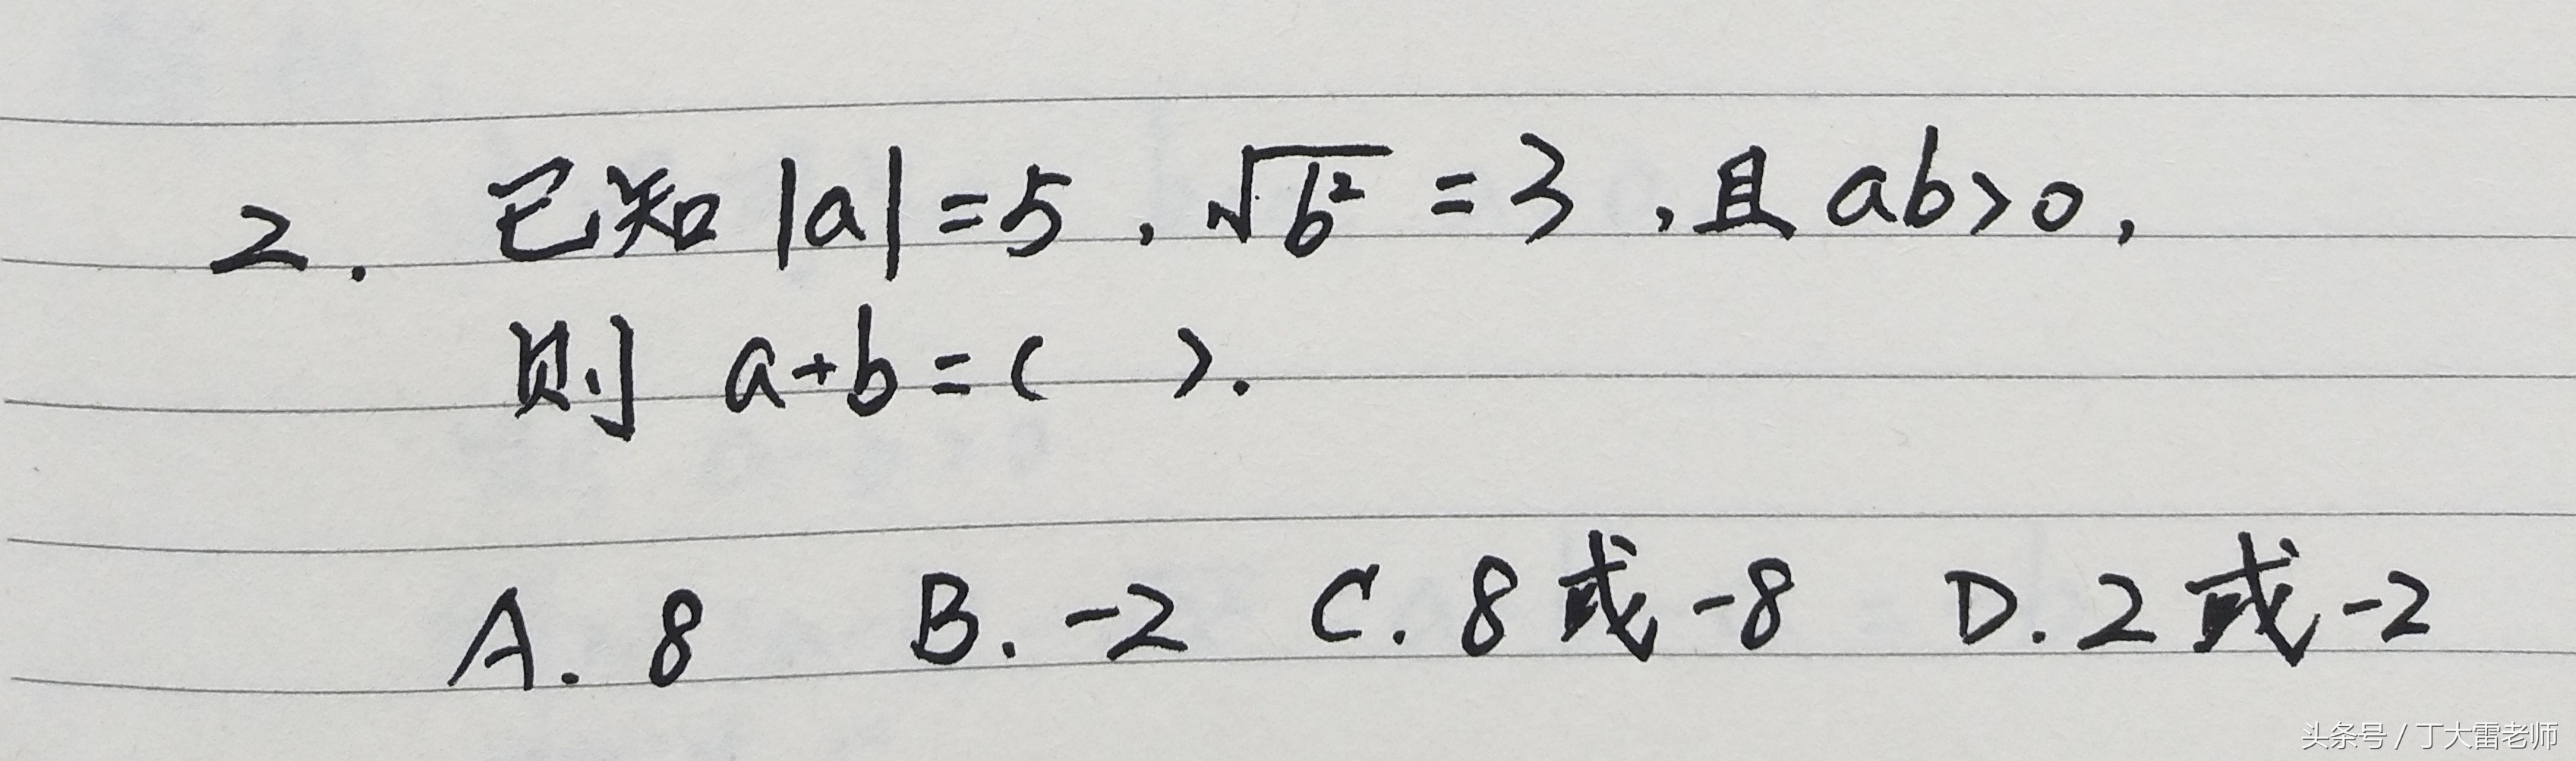 2. 已知|a|=5，√b²=3，且ab>0，
则 a+b=( ).
A. 8 B. -2 C. 8或-8 D. 2或-2
头条号 / 丁大雷老师